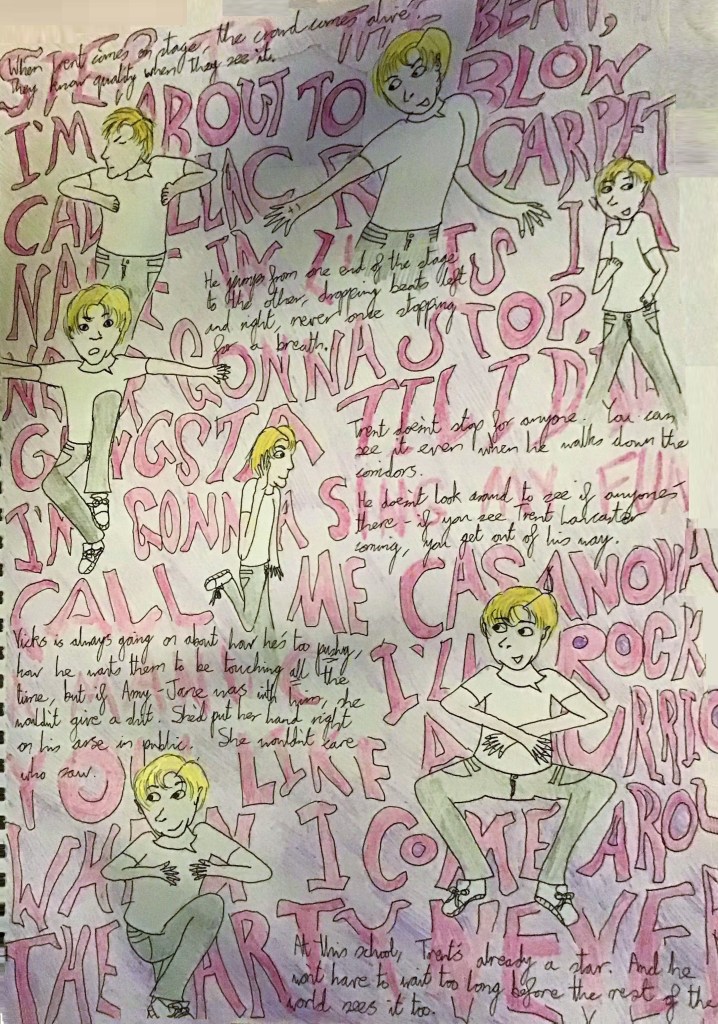 When Trent comes on stage, the crowd comes alive.
They know quality when they see it.
BEAT,
I'M ABOUT TO BLOW
CARPET
I
He jumps from one end of the stage
to the other, dropping beats left
and right, never once stopping
for a breath.
GONNA STOP,
TIL I
Trent doesn't stop for anyone. You can
see it even when he walks down the
corridors.
I'M GONNA
MY
He doesn't look around to see if anyone's
there - if you see Trent Lancaster
coming, you get out of his way.
CALL ME CASANOVA
Vicks is always going on about how he's too pushy,
how he wants them to be touching all the
time, but if Amy-Jane was with him, she
wouldn't give a shit. She'd put her hand right
on his arse in public. She wouldn't care
who saw.
I'LL ROCK
YOU LIKE A
WHEN I COME
THE PARTY NEVER
At this school, Trent's already a star. And he
won't have to wait too long before the rest of the
world sees it too.